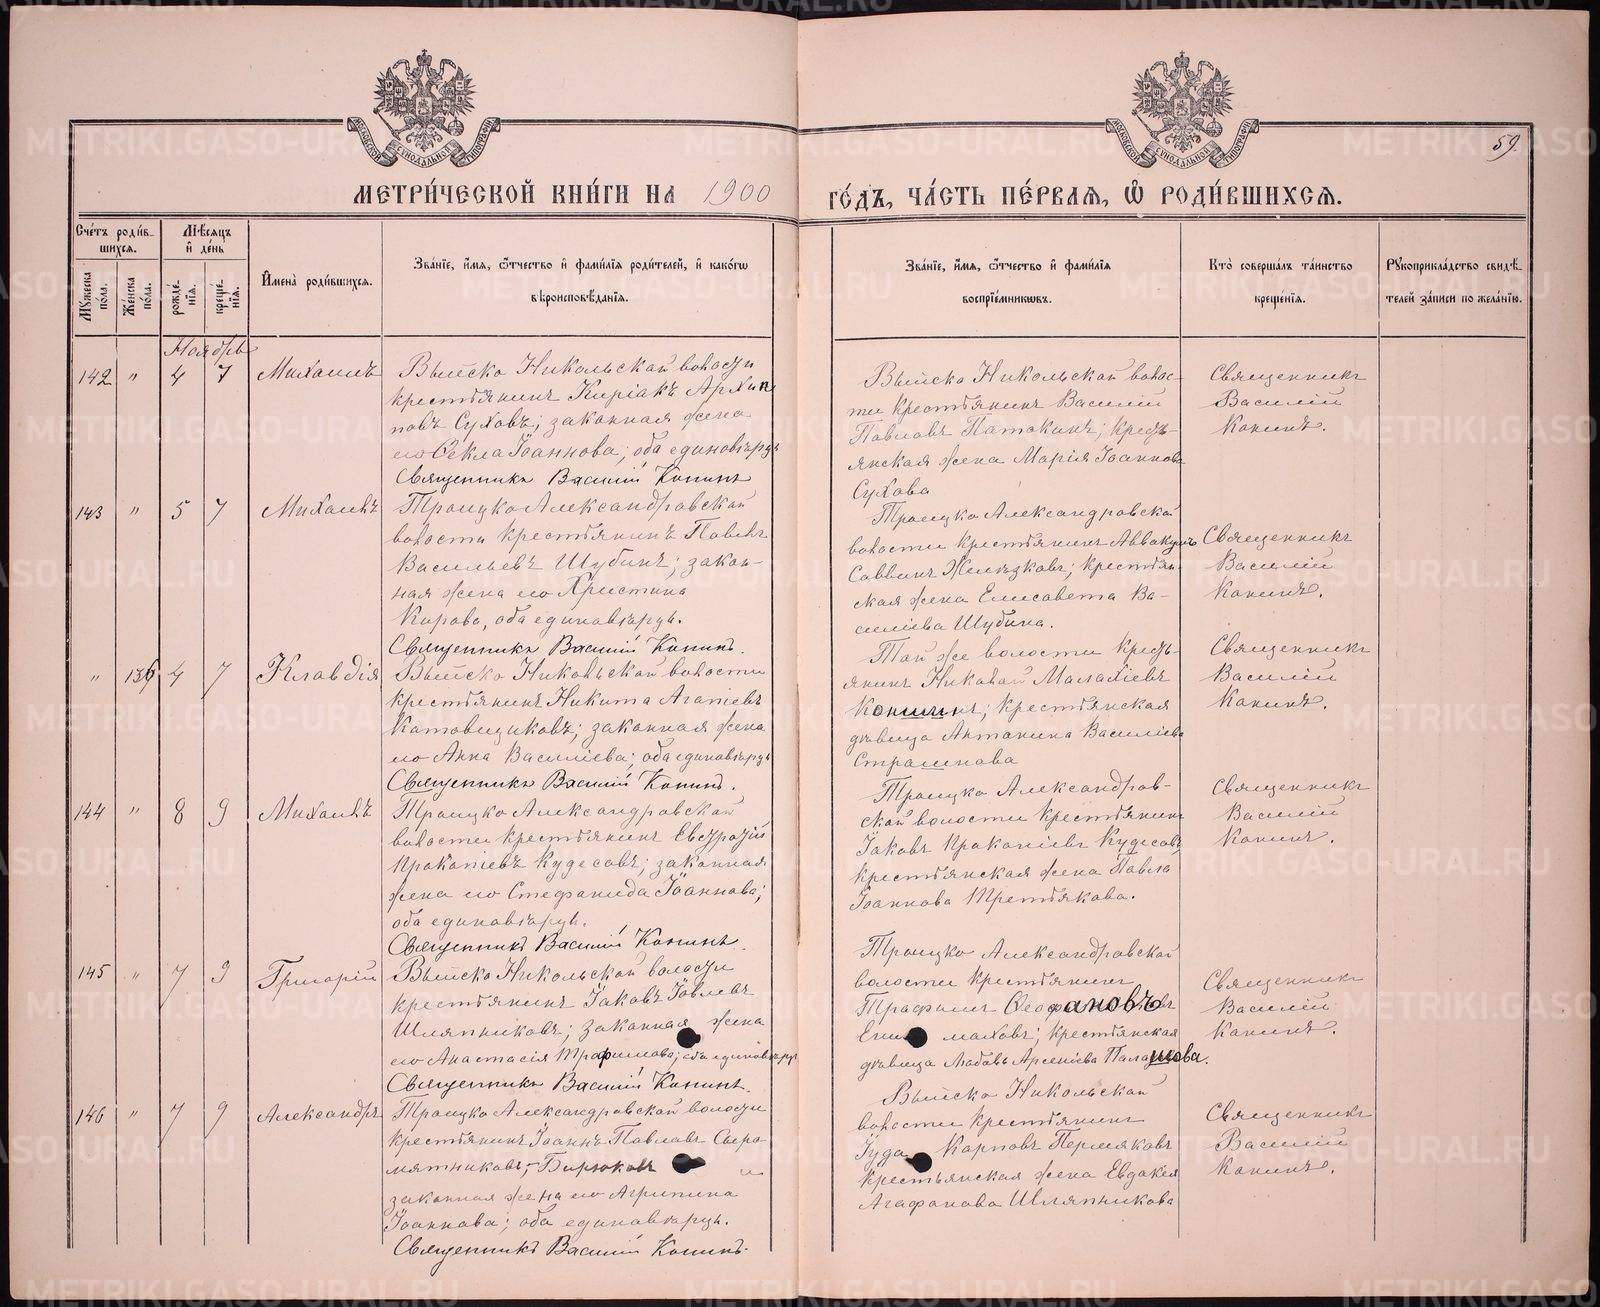 59.
МЕТРИ́ЧЕСКОЙ КНИ́ГИ НА 1900 ГО́ДЪ, ЧА́СТЬ ПЕ́РВАЯ, Ѡ РОДИ́ВШИХСЯ.
Сче́тъ роди́в-
шихся.
Му́жеска по́ла.
Же́нска по́ла.
Мѣ́сяцъ
и де́нь
рожде́-
нія.
креще́-
нія.
Имена̀ роди́вшихся.
Зва́ніе, и́мя, ѻ҆́тчество и фами́лія роди́телей, и како́гѡ
вѣроисповѣ́данія.
Зва́ніе, и́мя, ѻ҆́тчество и фами́лія
воспріе́мниковъ.
Кто̀ соверша́лъ та́инство
креще́нія.
Рукоприкла́дство свидѣ́-
телей за́писи по жела́нію.
Ноябрь
142 " 4 7 Михаилъ
Выйско Никольской волости
крестьянинъ Киріакъ Архип
повъ Суховъ, законная жена
его Ѳекла Іоаннова; оба единовѣрцы
Священникъ Василій Конинъ
Выйско Никольской волос-
ти крестьянинъ Василій
Павловъ Патокинъ; кресть-
янская жена Марія Іоаннова
Сухова
Священникъ
Василій
Конинъ.
143 " 5 7 Михаилъ
Троицко Александровской
волости крестьянинъ Павелъ
Васильевъ Шубинъ; закон-
ная жена его Христина
Кирова, оба единовѣрцы.
Священникъ Василій Конинъ.
Троицко Александровской
волости крестьянинъ Аввакумъ
Саввинъ Желѣзковъ; крестьян-
ская жена Елисавета Ва-
силіева Шубина.
Священникъ
Василій
Конинъ.
" 136 4 7 Клавдія
Выйско Никольской волости
крестьянинъ Никита Агапіевъ
Катовщиковъ; законная жена
его Анна Василіева; оба единовѣрцы
Священникъ Василій Конинъ.
Той же волости кресть-
янинъ Николай Малахіевъ
Коншинъ; крестьянская
дѣвица Антонина Василіева
Страшнова
Священникъ
Василій
Конинъ.
144 " 8 9 Михаилъ
Троицко Александровской
волости крестьянинъ Евграфій
Прокопіевъ Кудесовъ; законная
жена его Стефанида Іоаннова;
оба единовѣрцы.
Священникъ Василій Конинъ.
Троицко Александров-
ской волости крестьянинъ
Іаковъ Прокопіевъ Кудесовъ,
крестьянская жена Павла
Іоаннова Третьякова.
Священникъ
Василій
Конинъ.
145 " 7 9 Григорій
Выйско Никольской волости
крестьянинъ Іаковъ Іовлевъ
Шляпниковъ; законная жена
его Анастасія Трофимова; оба единовѣрцы
Священникъ Василій Конинъ.
Троицко Александровской
волости крестьянинъ
Трофимъ Ѳеофановъ
маховъ; крестьянская
дѣвица Любовь Арсеніева Палашова.
Священникъ
Василій
Конинъ.
146 " 7 9 Александръ
Троицко Александровской волости
крестьянинъ Іоаннъ Павловъ Сыро-
мятниковъ, Бирюковъ и
законная жена его Агрипина
Іоаннова; оба единовѣрцы.
Священникъ Василій Конинъ.
Выйско Никольской
волости крестьянинъ
Іуда Карповъ Пермяковъ
крестьянская жена Евдокія
Агафонова Шляпникова
Священникъ
Василій
Конинъ.
METRIKI.GASO-URAL.RU